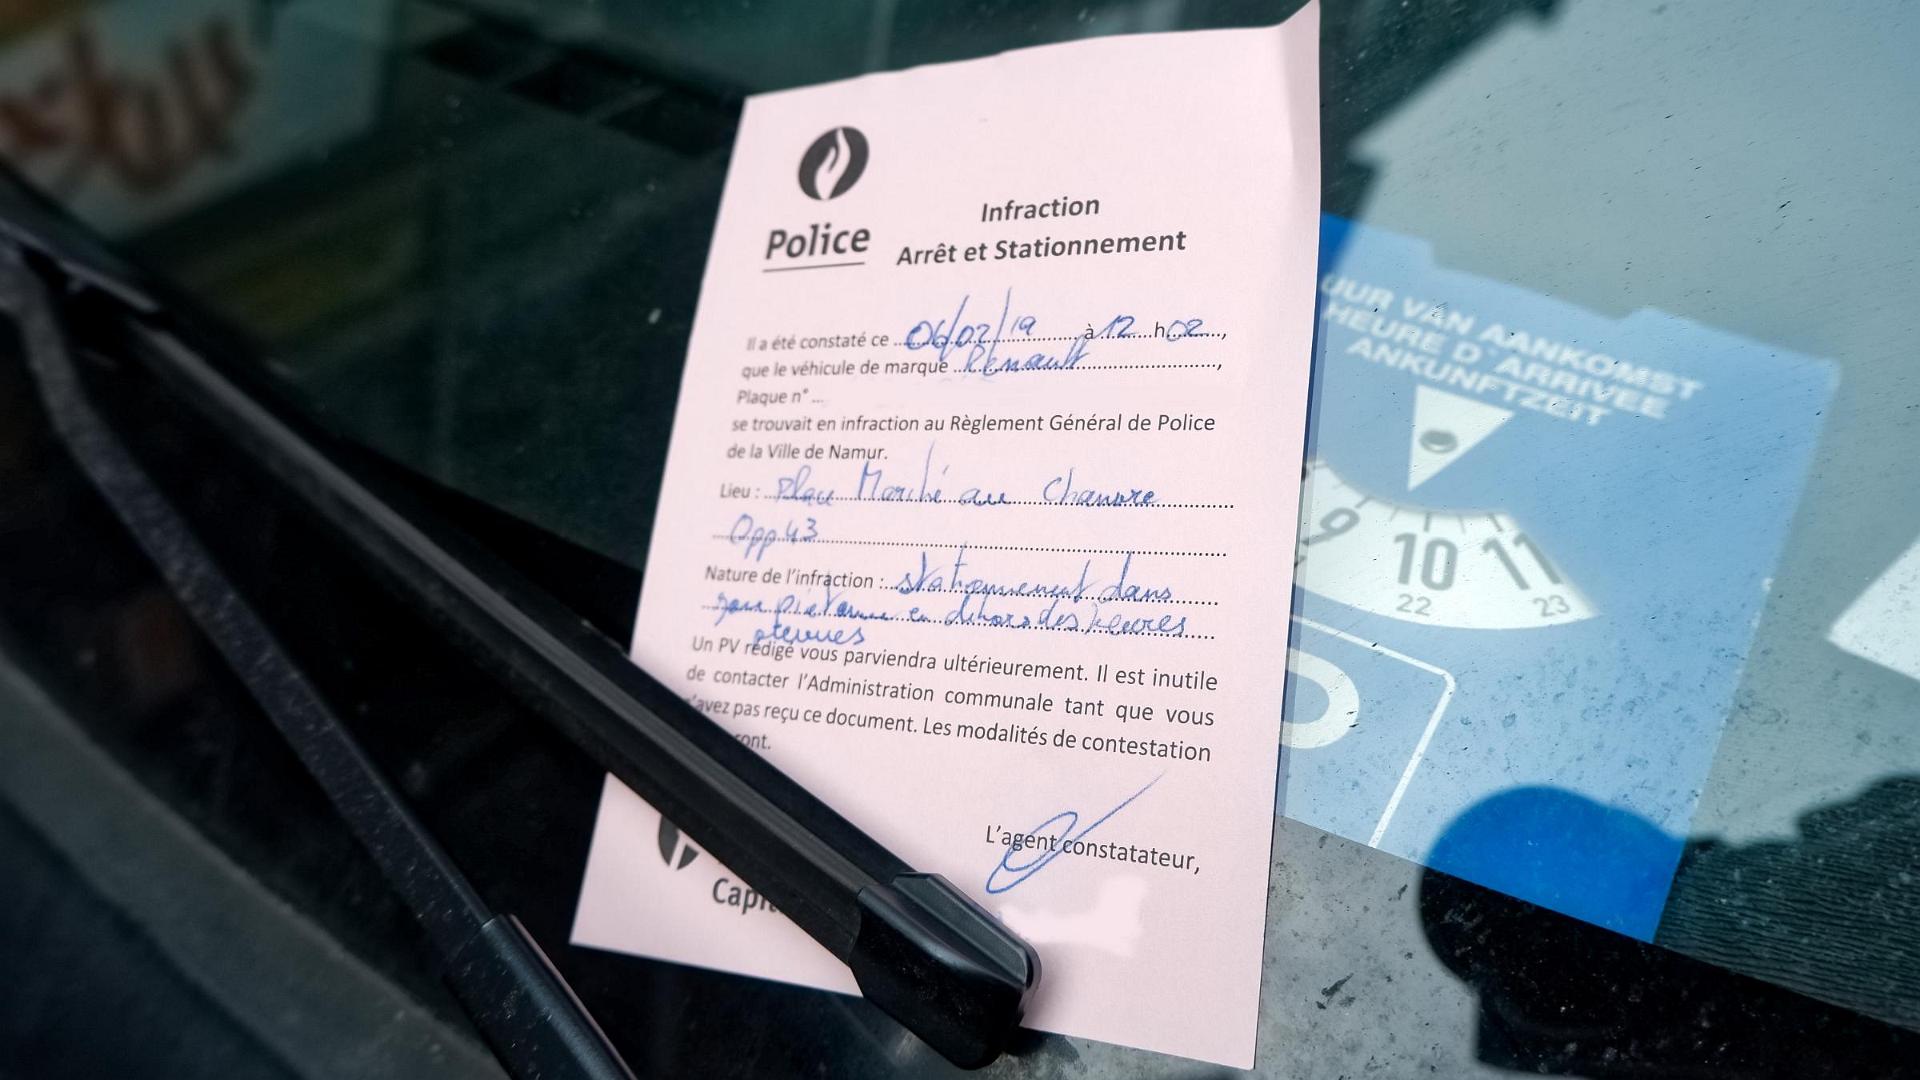 Police
Infraction
Arrêt et Stationnement
Il a été constaté ce 06/02/19 à 12 h 02,
que le véhicule de marque Renault,
Plaque n° ...
se trouvait en infraction au Règlement Général de Police
de la Ville de Namur.
Lieu : Place Marché au Chanvre
Opp 43
Nature de l'infraction : stationnement dans
zone piétonne en dehors des heures
prévues
Un PV rédigé vous parviendra ultérieurement. Il est inutile
de contacter l'Administration communale tant que vous
n'avez pas reçu ce document. Les modalités de contestation
ront.
L'agent constatateur,
Capit
UUR VAN AANKOMST
HEURE D'ARRIVEE
ANKUNFTZEIT
9 10 11
22 23